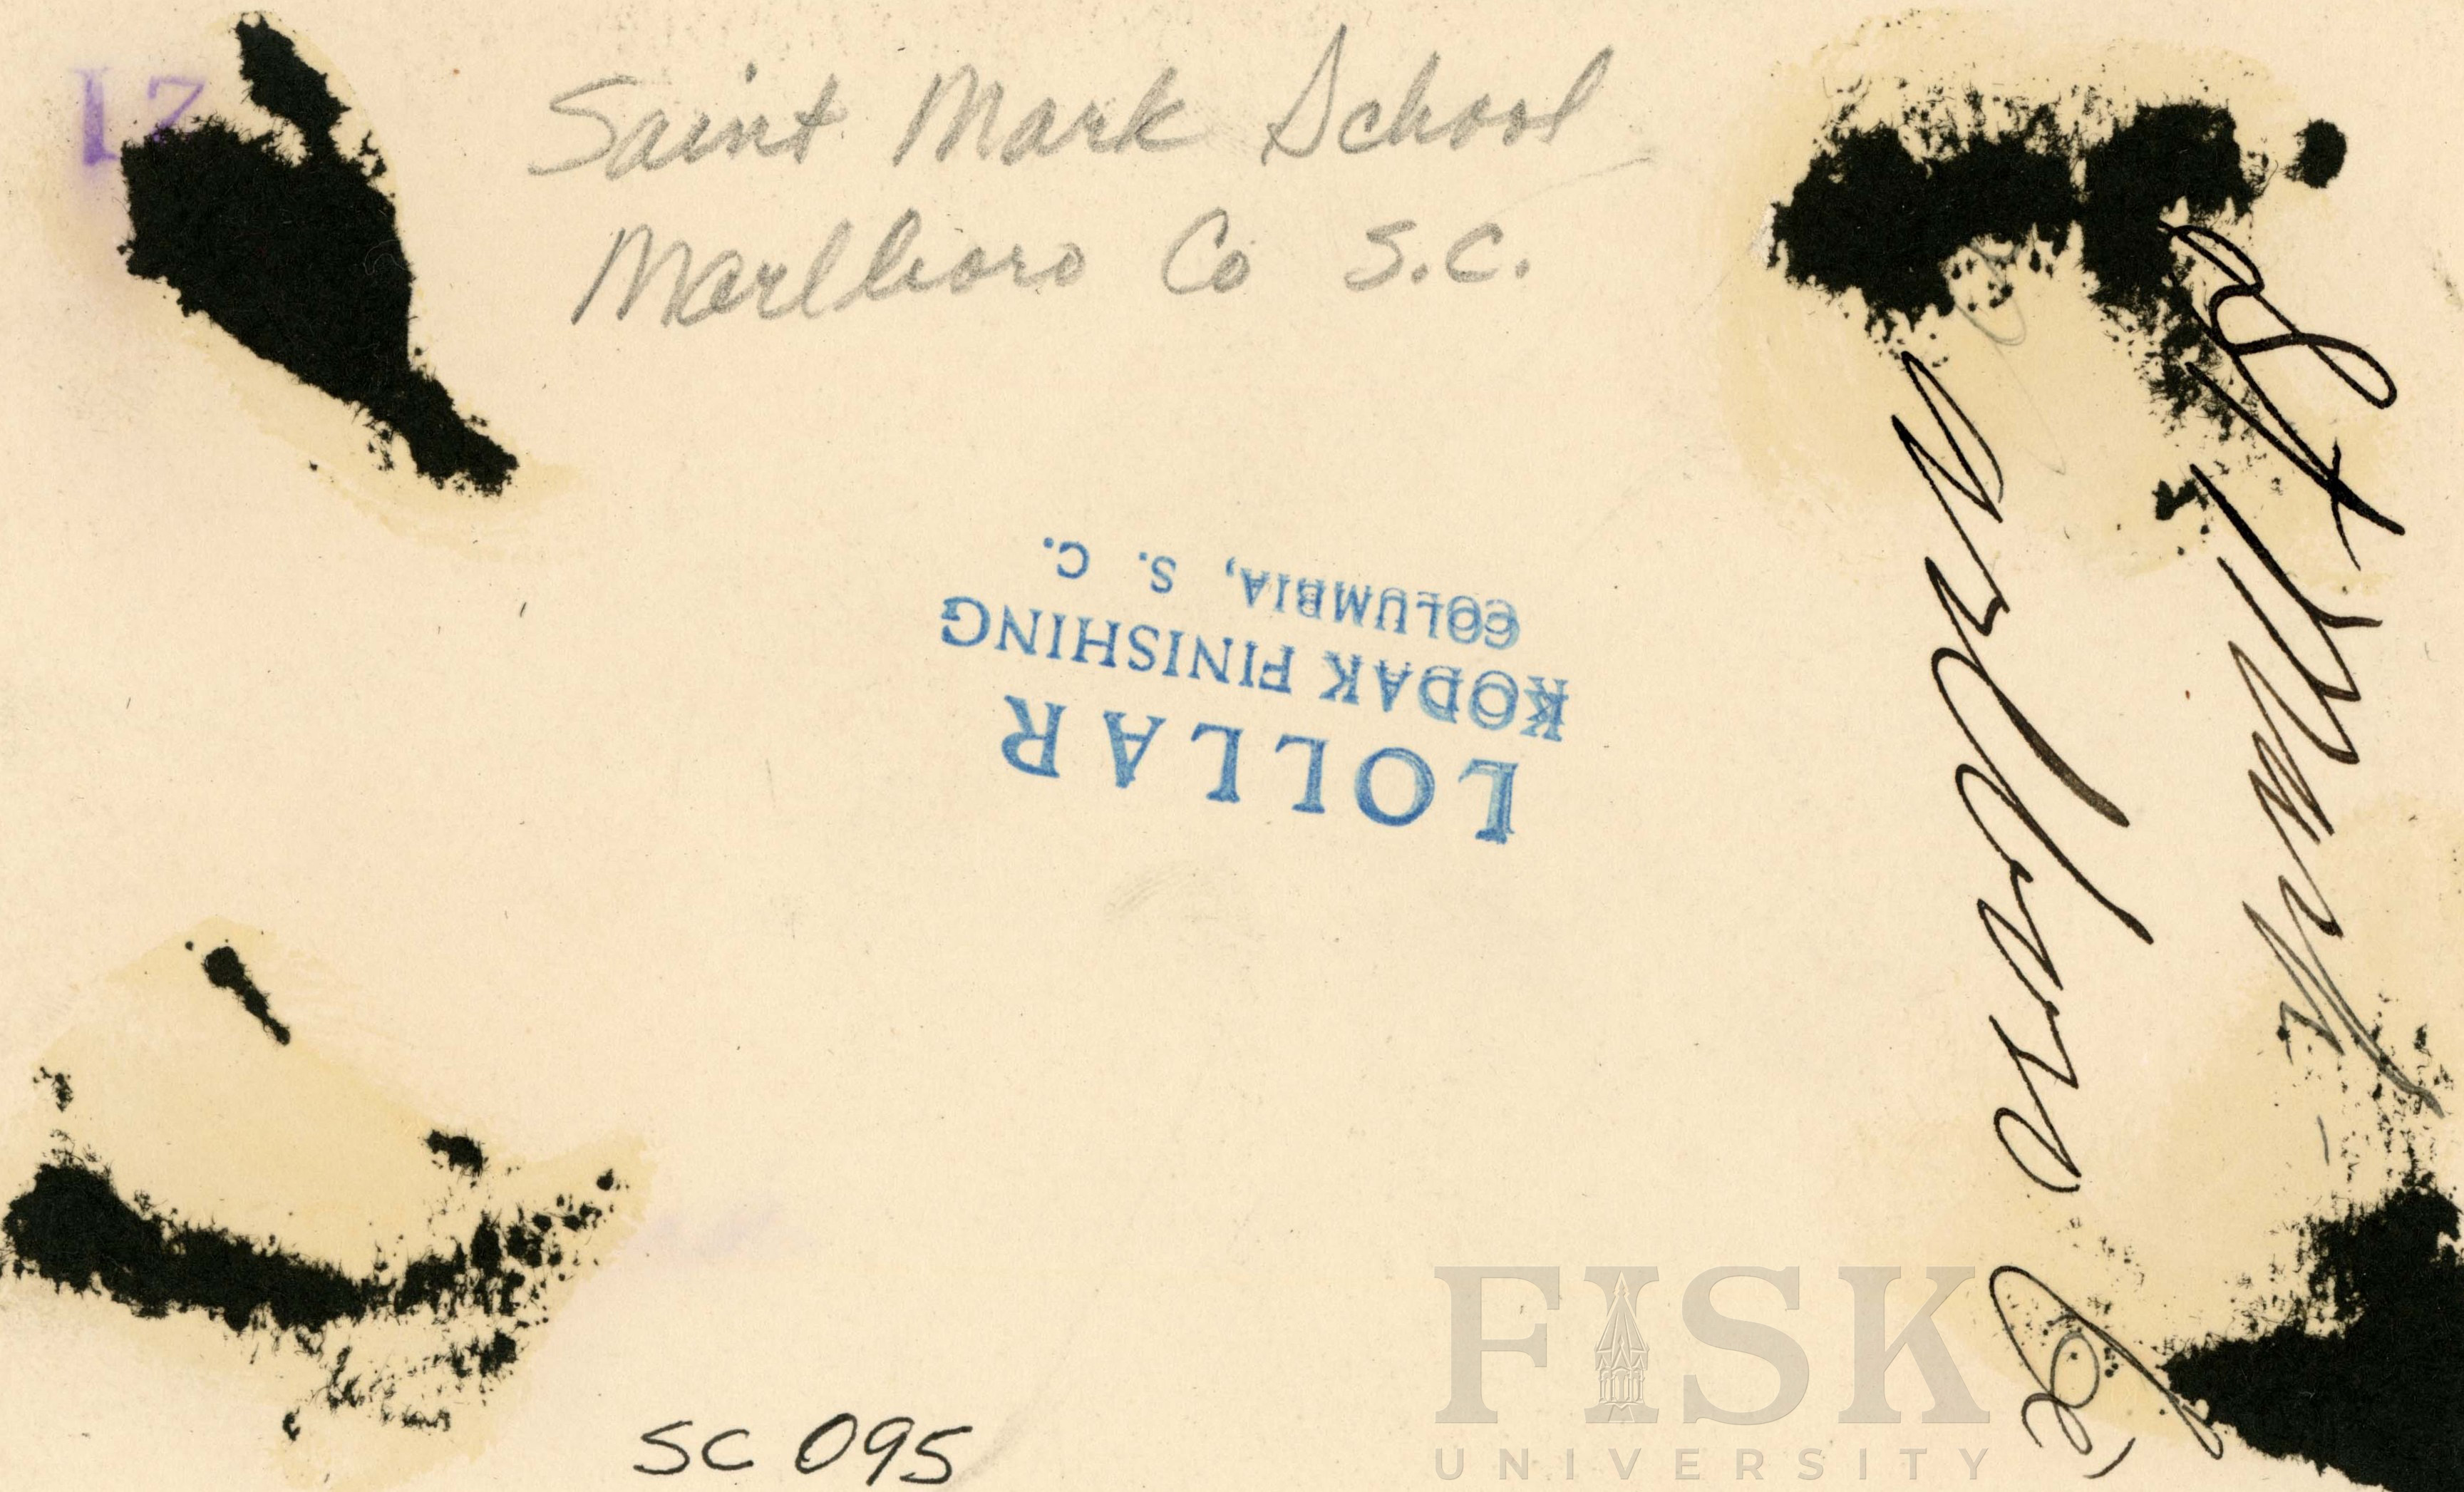 17
Saint Mark School
Marlboro Co S.C.
LOLLAR
KODAK FINISHING
COLUMBIA, S. C.
St Mark
SC 095
FISK
UNIVERSITY